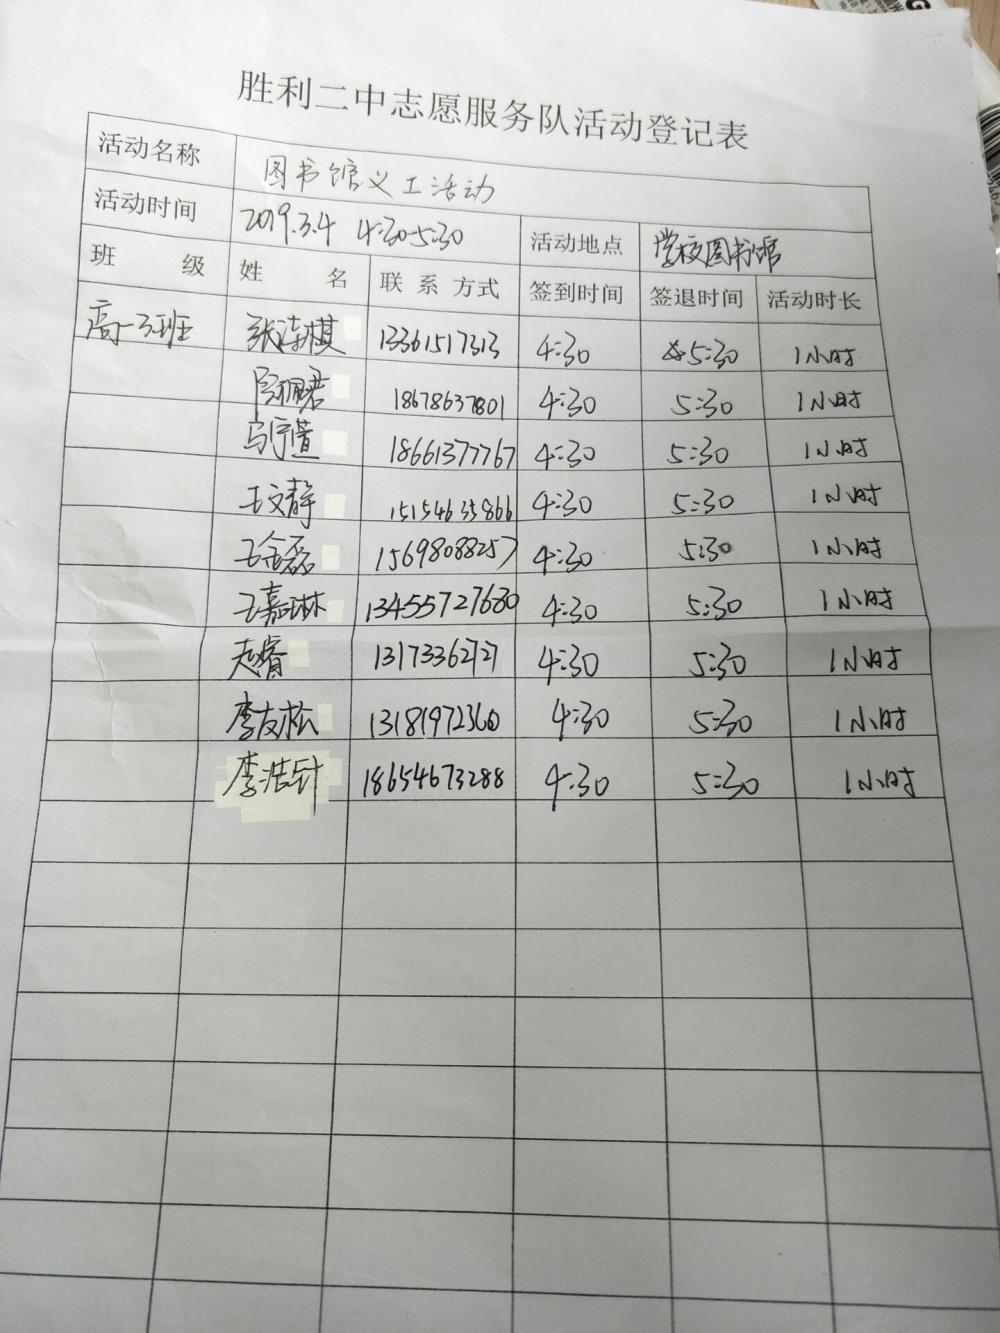 胜利二中志愿服务队活动登记表
活动名称 图书馆义工活动
活动时间 2019.3.4 4:30-5:30 活动地点 学校图书馆
班 级 姓 名 联系方式 签到时间 签退时间 活动时长
高一3班 张涛棋 13361517313 4:30 5:30 1小时
18678637801 4:30 5:30 1小时
马宁萱 18661377767 4:30 5:30 1小时
王文静 15154635866 4:30 5:30 1小时
王金磊 15698088257 4:30 5:30 1小时
王嘉琳 13455727680 4:30 5:30 1小时
赵睿 13173362727 4:30 5:30 1小时
李友松 13181972360 4:30 5:30 1小时
李浩针 18654673288 4:30 5:30 1小时